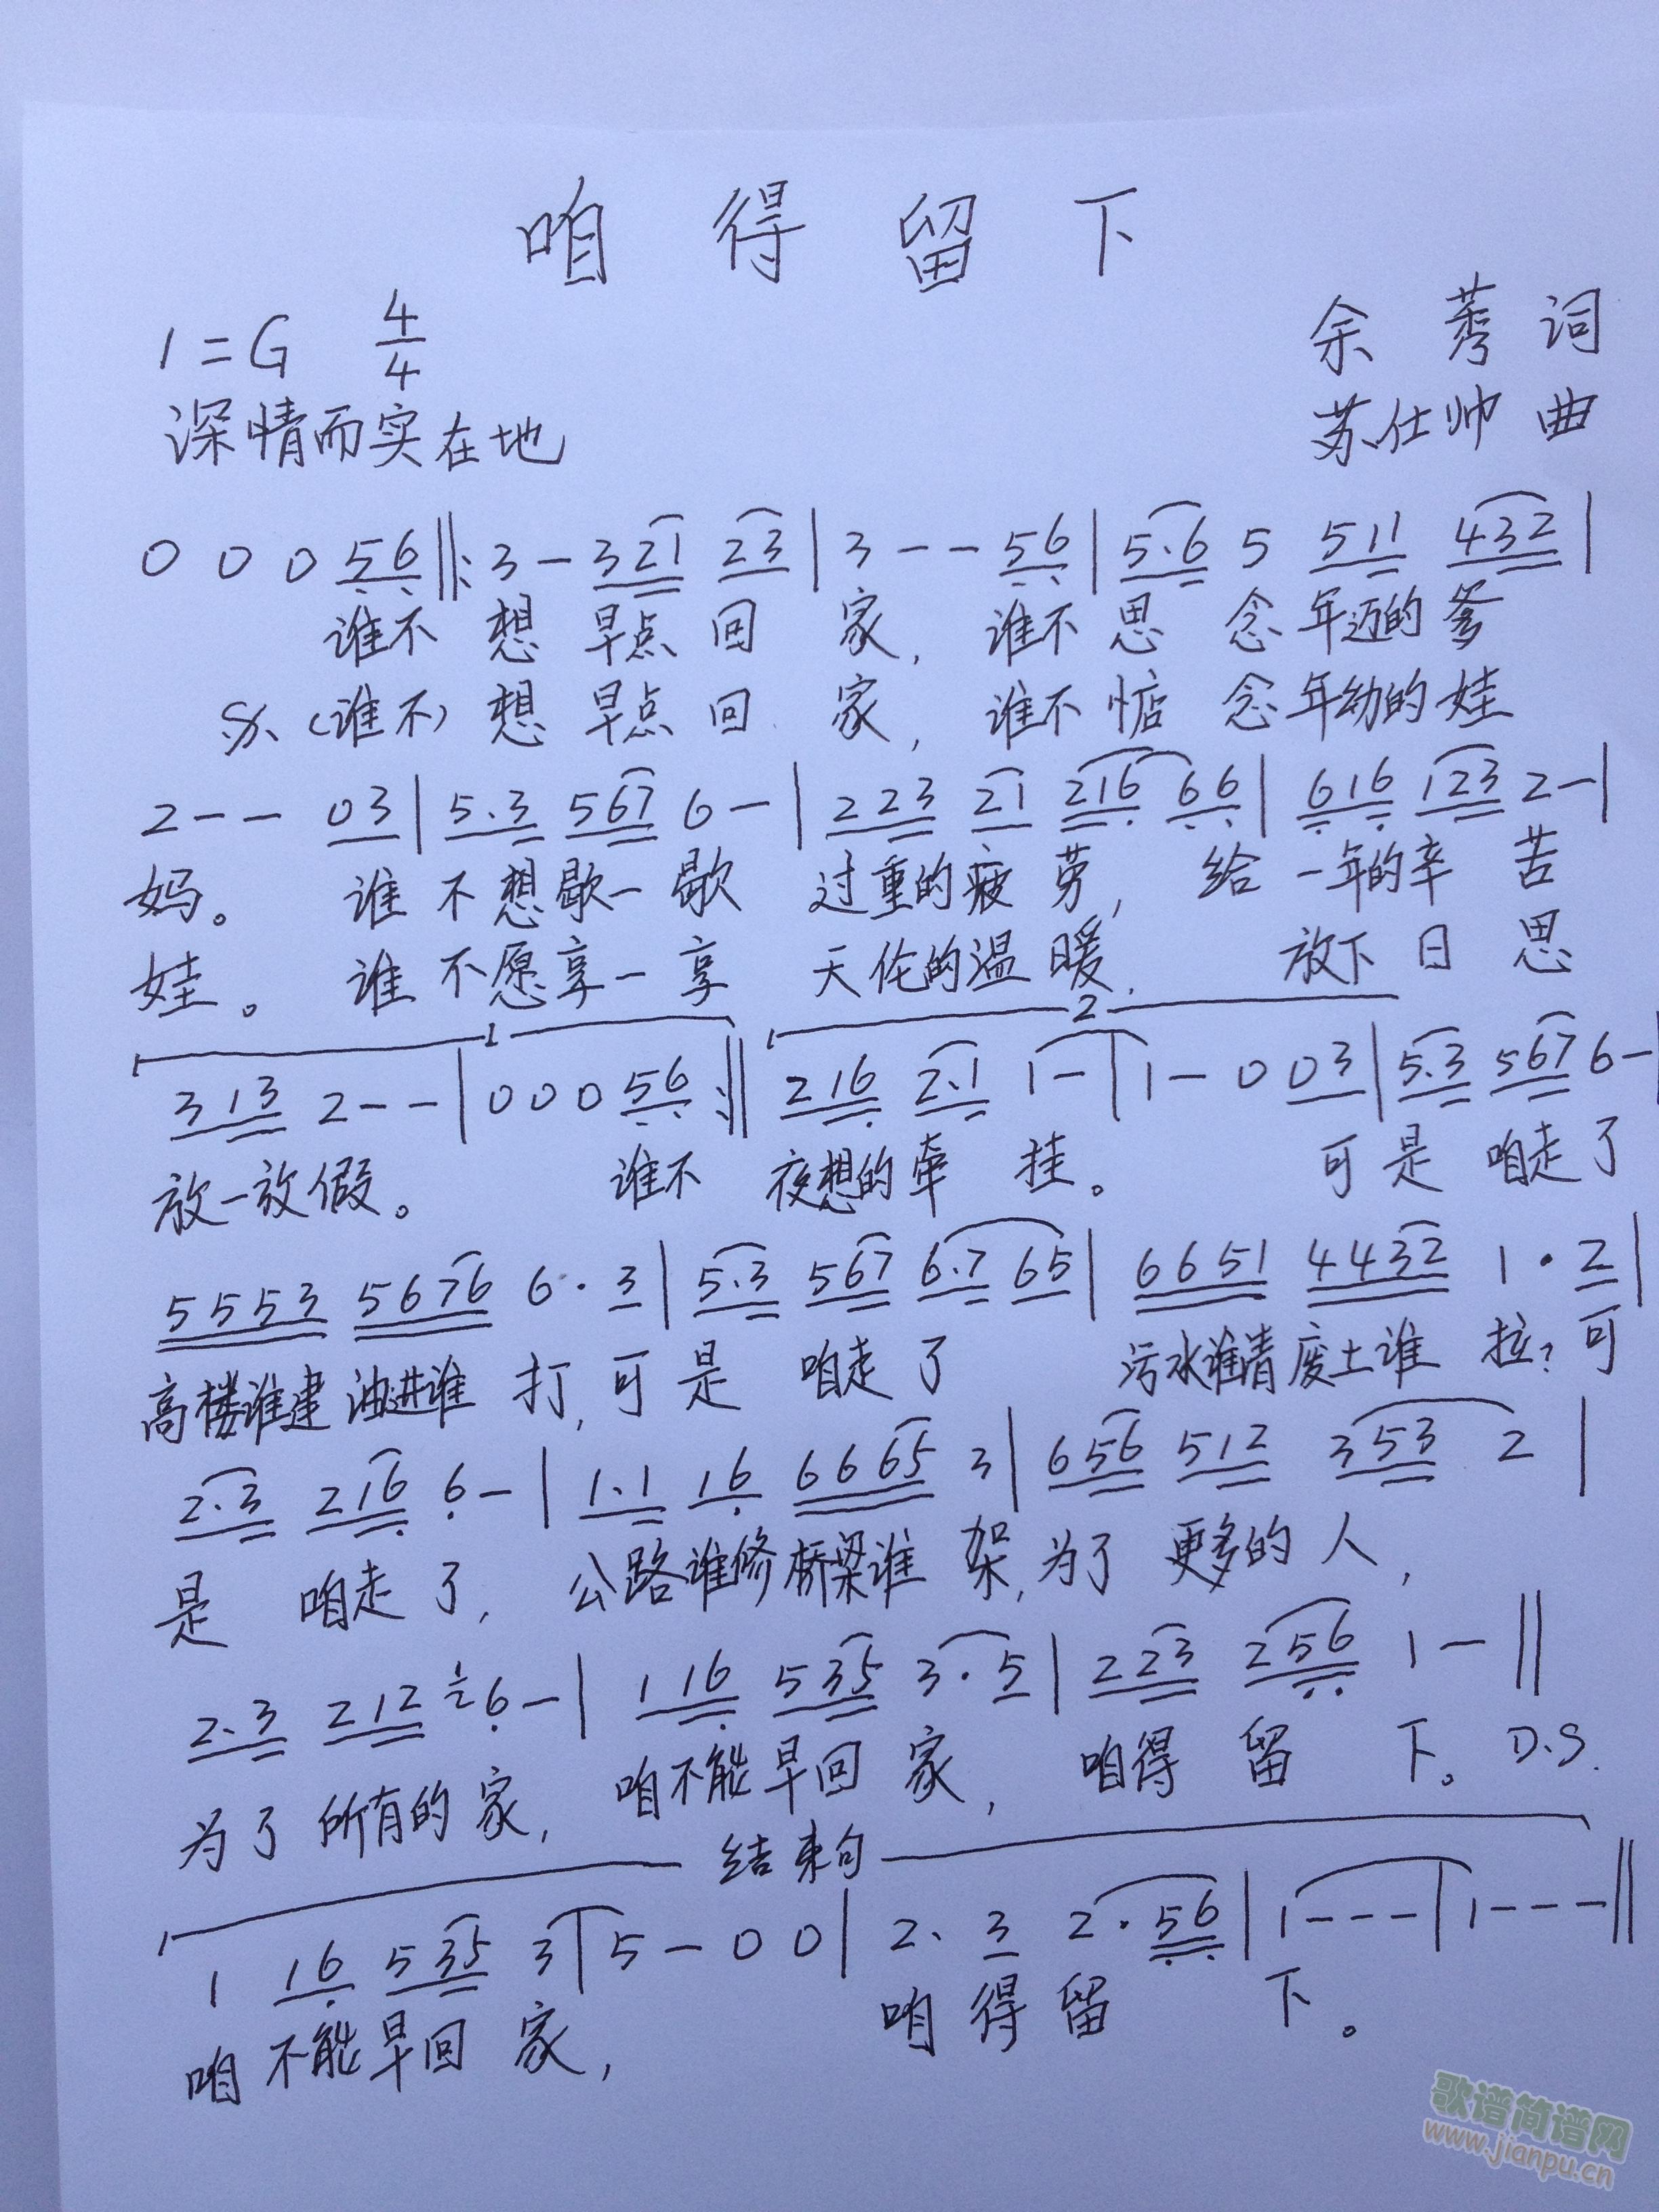 咱得留下
1=G 4/4
余莠词
深情而实在地
苏仕帅曲
0 0 0 56‖:3-321 23|3--56|5·6 5 511 432|
谁不想早点回家,谁不思念年迈的爹
(谁不)想早点回家,谁不惦念年幼的娃
2-- 03|5·3 567 6-|223 21 216 66|616 123 2-|
妈。谁不想歇一歇过重的疲劳,给一年的辛苦
娃。谁不愿享一享天伦的温暖,放下日思
1 2
313 2--|000 56:‖216 2·1 1-|1-0 03|5·3 567 6-|
放一放假。谁不夜想的牵挂。可是咱走了
5553 5676 6·3|5·3 567 6·7 65|6651 4432 1·2|
高楼谁建油进谁打,可是咱走了污水谁清废土谁拉?可
2·3 216 6-|1·1 16 6665 3|656 512 353 2|
是咱走了,公路谁修桥梁谁架,为了更多的人,
2·3 212 6-|116 535 3·5|223 256 1-‖
为了所有的家,咱不能早回家,咱得留下。D.S.
结束句
1 16 535 3|5-0 0|2·3 2·56|1---|1---‖
咱不能早回家,咱得留下。
歌谱简谱网
www.jianpu.cn